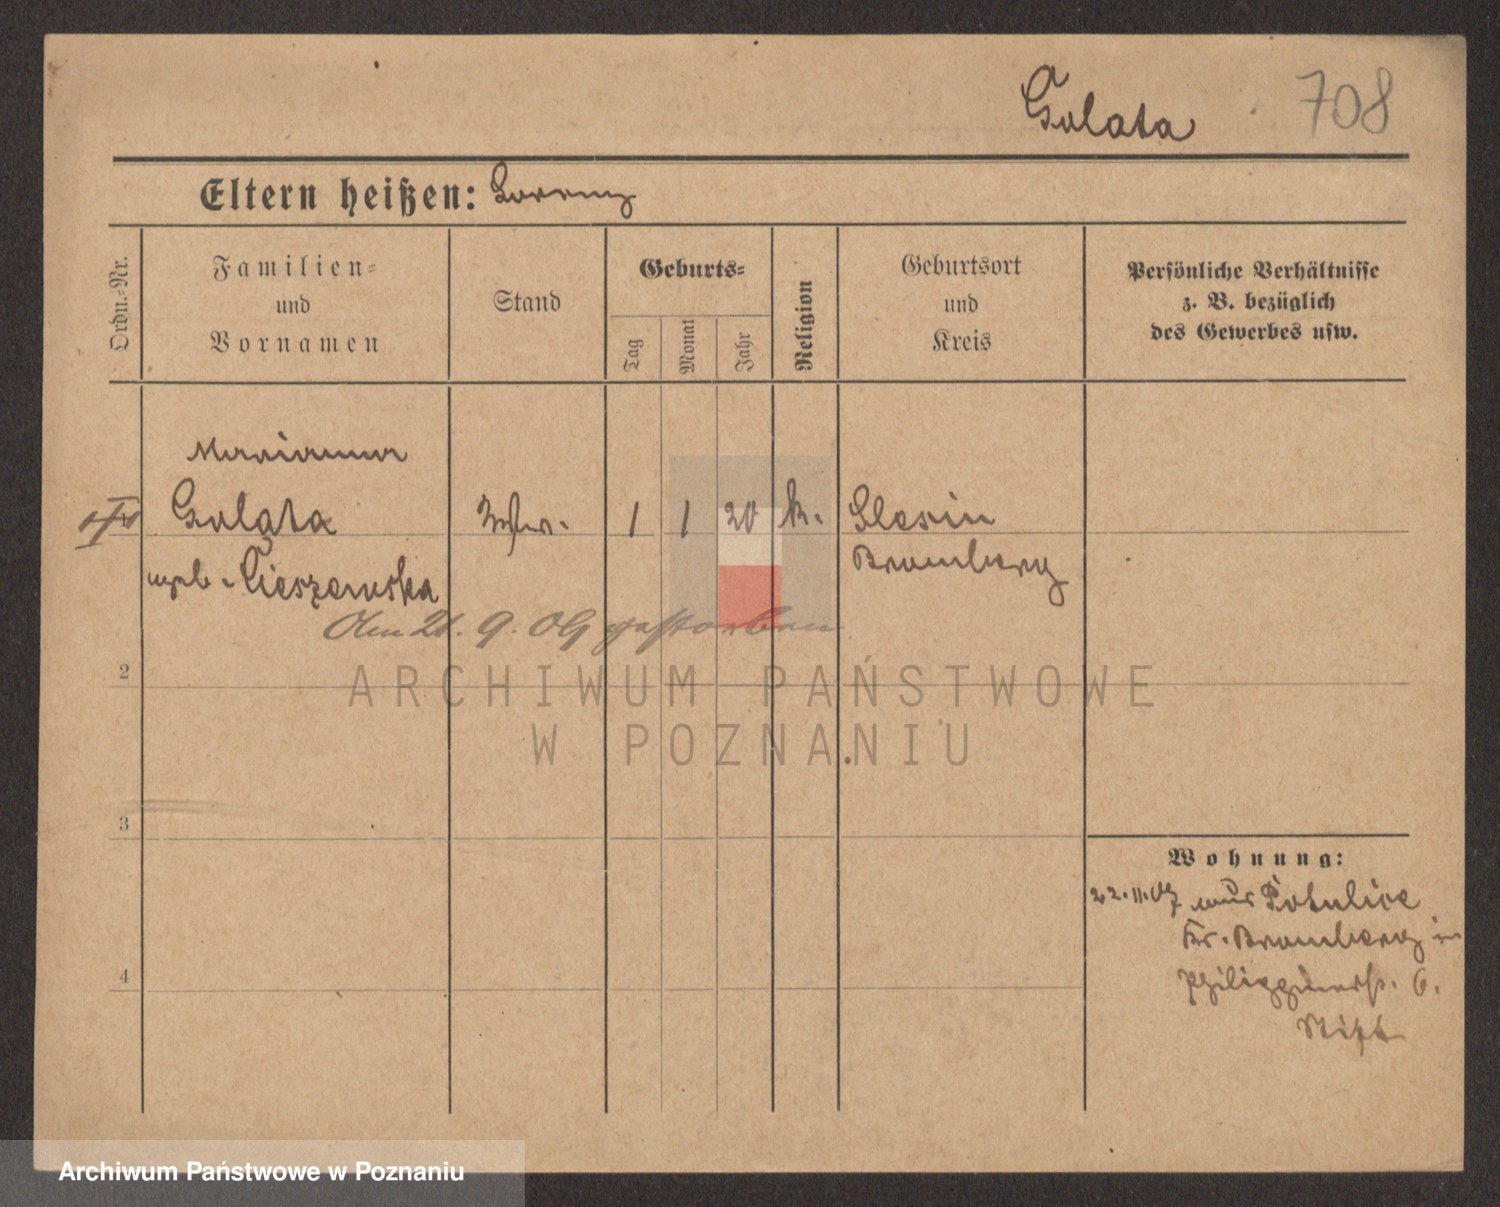 Golata 708
Eltern heißen: Lorenz
Ordn.-Nr.
Familien-
und
Vornamen
Stand
Geburts-
Tag
Monat
Jahr
Religion
Geburtsort
und
Kreis
Persönliche Verhältnisse
z. B. bezüglich
des Gewerbes usw.
Marianna
Golata
1 1 20 k. Slesin
geb. Cieszewska
Bromberg
Am 21. 9. 09 gestorben
2
3
4
Wohnung:
22.11.07 aus Potulice
Kr. Bromberg in
Philippinerstr. 6.
Stift
ARCHIWUM PAŃSTWOWE
W POZNANIU
Archiwum Państwowe w Poznaniu